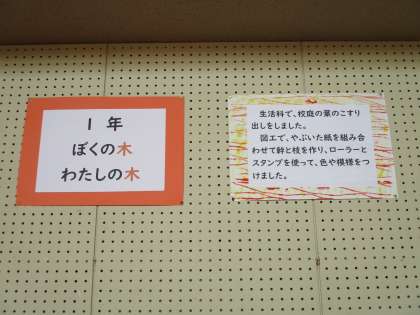 1 年
ぼくの木
わたしの木
生活科で、校庭の葉のこすり
出しをしました。
図工で、やぶいた紙を組み合
わせて幹と枝を作り、ローラーと
スタンプを使って、色や模様をつ
けました。